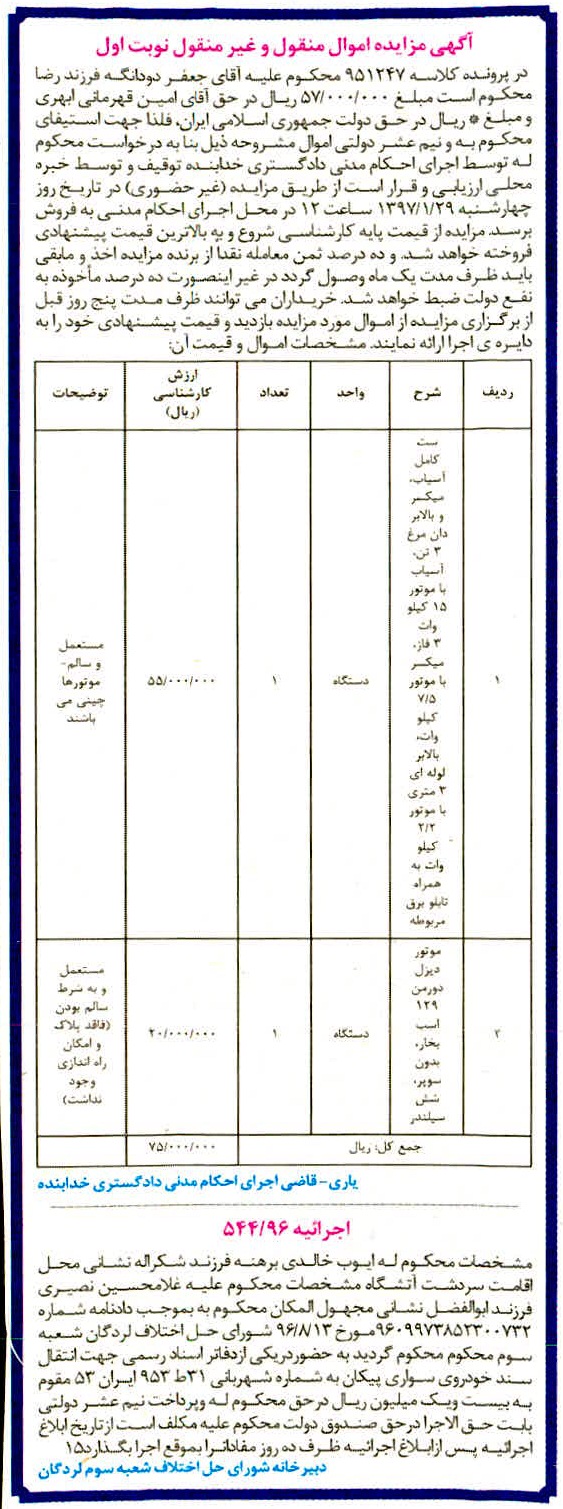 آگهی مزایده اموال منقول و غیر منقول نوبت اول
در پرونده کلاسه ۹۵۱۲۴۷ محکوم علیه آقای جعفر دودانگه فرزند رضا
محکوم است مبلغ ۵۷/۰۰۰/۰۰۰ ریال در حق آقای امین قهرمانی ابهری
و مبلغ * ریال در حق دولت جمهوری اسلامی ایران، فلذا جهت استیفای
محکوم به و نیم عشر دولتی اموال مشروحه ذیل بنا به درخواست محکوم
له توسط اجرای احکام مدنی دادگستری خدابنده توقیف و توسط خبره
محلی ارزیابی و قرار است از طریق مزایده (غیر حضوری) در تاریخ روز
چهارشنبه ۱۳۹۷/۱/۲۹ ساعت ۱۲ در محل اجرای احکام مدنی به فروش
برسد مزایده از قیمت پایه کارشناسی شروع و به بالاترین قیمت پیشنهادی
فروخته خواهد شد. و ده درصد ثمن معامله نقدا از برنده مزایده اخذ و مابقی
باید ظرف مدت یک ماه وصول گردد در غیر اینصورت ده درصد مأخوذه به
نفع دولت ضبط خواهد شد. خریداران می توانند ظرف مدت پنج روز قبل
از برگزاری مزایده از اموال مورد مزایده بازدید و قیمت پیشنهادی خود را به
دایره ی اجرا ارائه نمایند. مشخصات اموال و قیمت آن:
ردیف
شرح
واحد
تعداد
ارزش
کارشناسی
(ریال)
توضیحات
۱
ست
کامل
آسیاب،
میکسر
و بالابر
دان مرغ
۳ تن،
آسیاب
با موتور
۱۵ کیلو
وات
۳ فاز،
میکسر
با موتور
۷/۵
کیلو
وات،
بالابر
لوله ای
۳ متری
با موتور
۲/۲
کیلو
وات به
همراه
تابلو برق
مربوطه
دستگاه
۱
۵۵/۰۰۰/۰۰۰
مستعمل
و سالم-
موتورها
چینی می
باشند
۲
موتور
دیزل
دورمن
۱۲۹
اسب
بخار،
بدون
سوپر،
شش
سیلندر
دستگاه
۱
۲۰/۰۰۰/۰۰۰
مستعمل
و به شرط
سالم بودن
(فاقد پلاک
و امکان
راه اندازی
وجود
نداشت)
جمع کل: ریال
۷۵/۰۰۰/۰۰۰
یاری- قاضی اجرای احکام مدنی دادگستری خدابنده
اجرائیه ۵۴۴/۹۶
مشخصات محکوم له ایوب خالدی برهنه فرزند شکراله نشانی محل
اقامت سردشت آتشگاه مشخصات محکوم علیه غلامحسین نصیری
فرزند ابوالفضل نشانی مجهول المکان محکوم به بموجب دادنامه شماره
۹۶۰۹۹۷۳۸۵۲۳۰۰۷۳۲مورخ ۹۶/۸/۱۳ شورای حل اختلاف لردگان شعبه
سوم محکوم محکوم گردید به حضوردریکی ازدفاتر اسناد رسمی جهت انتقال
سند خودروی سواری پیکان به شماره شهربانی ۳۱ط ۹۵۳ ایران ۵۳ مقوم
به بیست ویک میلیون ریال درحق محکوم له وپرداخت نیم عشر دولتی
بابت حق الاجرا درحق صندوق دولت محکوم علیه مکلف است ازتاریخ ابلاغ
اجرائیه پس ازابلاغ اجرائیه ظرف ده روز مفادانرا بموقع اجرا بگذارد۱۵
دبیرخانه شورای حل اختلاف شعبه سوم لردگان